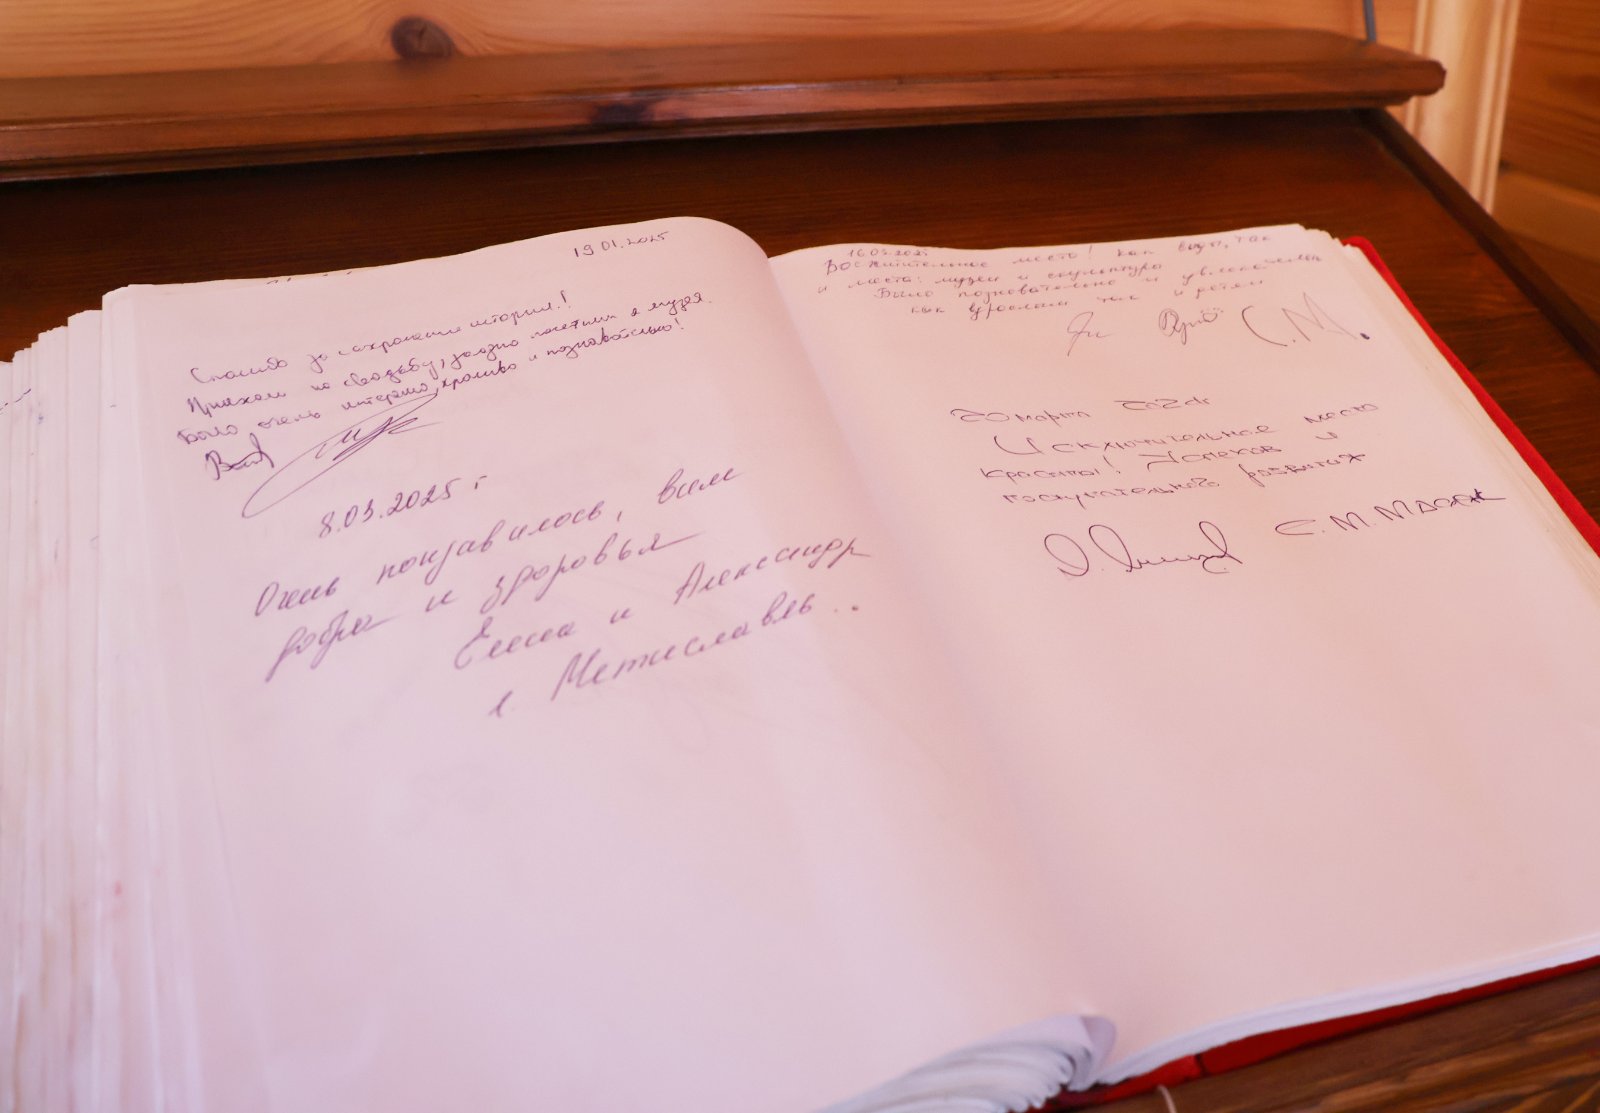 19.01.2025
Спасибо за сохранение истории!
Приехали на свадьбу, заодно посетили 2 музея.
Было очень интересно, красиво и познавательно!
8.03.2025 г
Очень понравилось, всем
добра и здоровья
Елена и Александр
г. Мстиславль...
16.03.2025
Восхитительное место! Как виды, так
и места: музеи и скульптуры
Было познавательно и увлекательно
как взрослым так и детям
С.М.
20 марта
Исключительное место
красоты! Успехов и
поступательного развития
С.М.